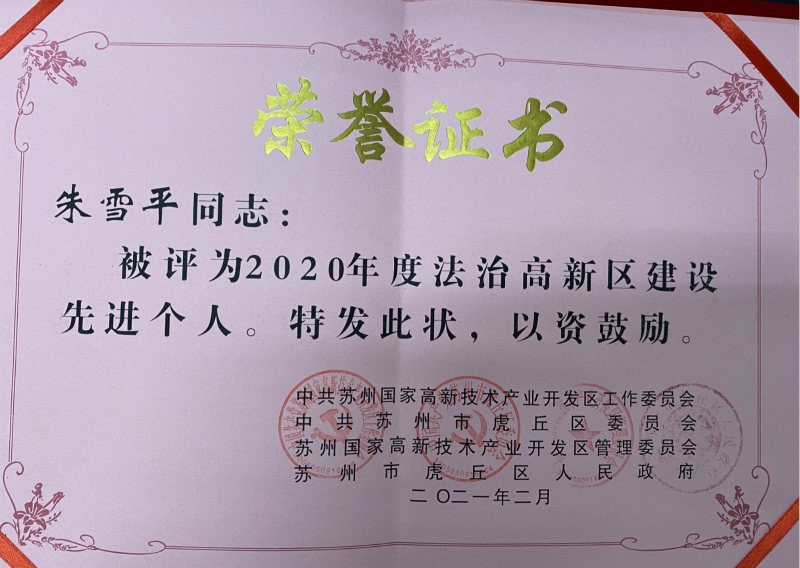 荣誉证书
朱雪平同志：
被评为2020年度法治高新区建设
先进个人。特发此状，以资鼓励。
中共苏州国家高新技术产业开发区工作委员会
中共苏州市虎丘区委员会
苏州国家高新技术产业开发区管理委员会
苏州市虎丘区人民政府
二〇二一年二月